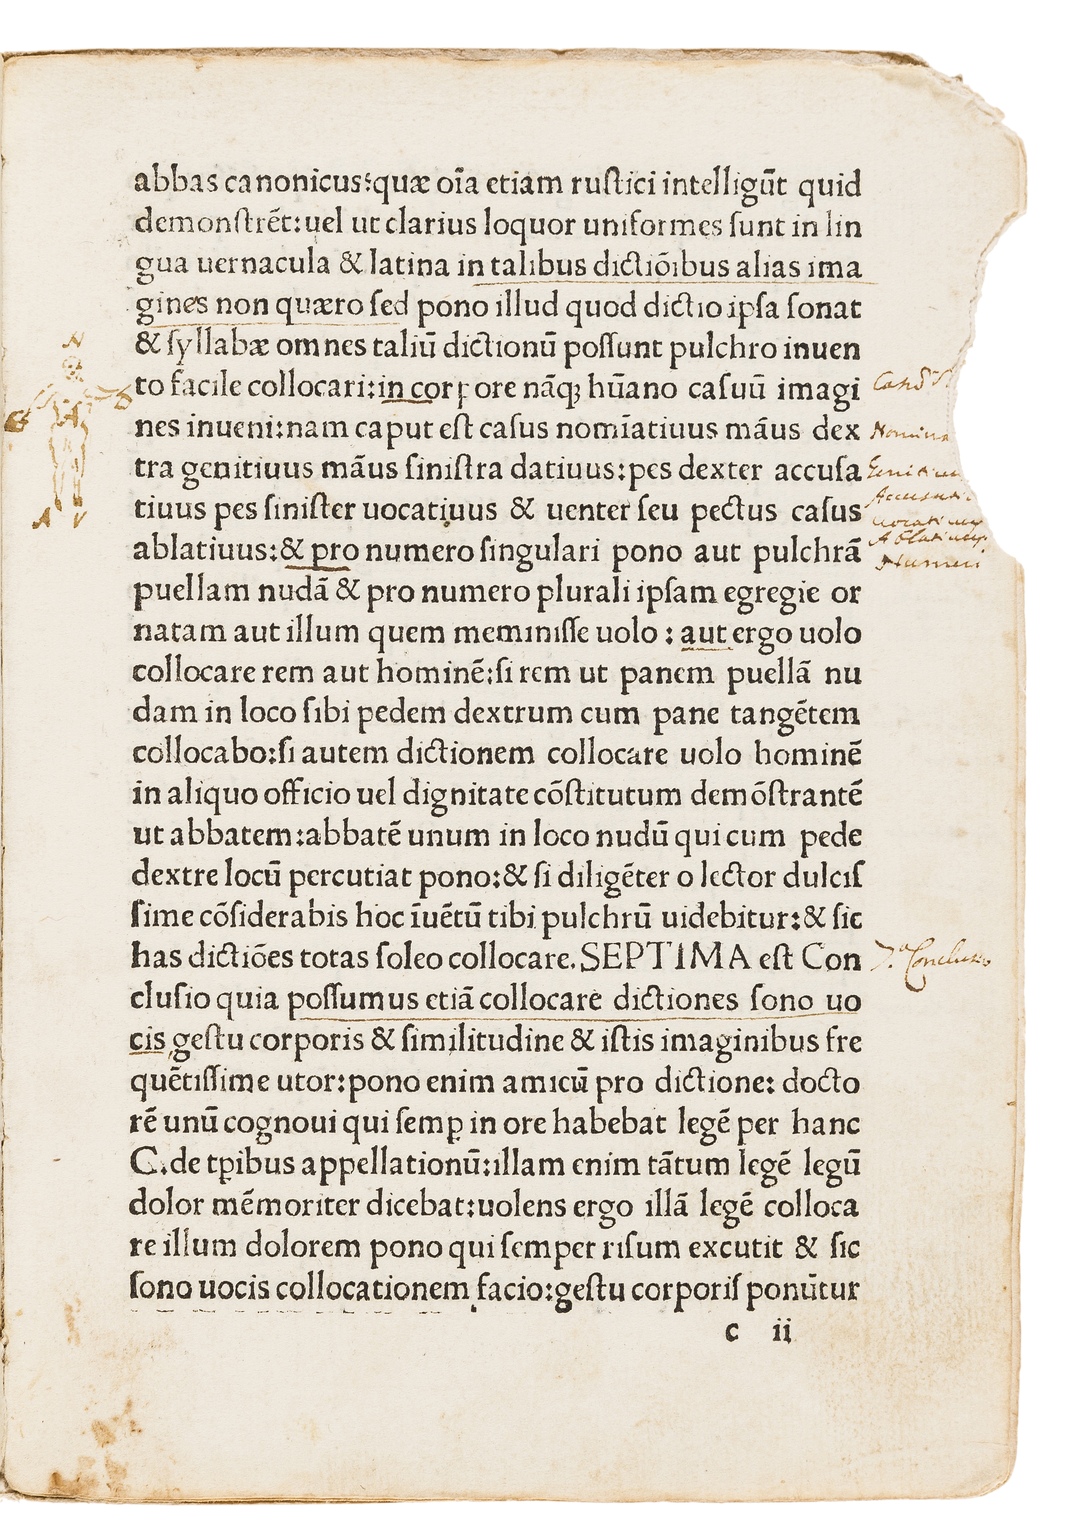 abbas canonicus:quæ oı̃a etiam ruſtici intelligũt quid
demonſtrẽt:uel ut clarius loquor uniformes ſunt in lin
gua uernacula & latina in talibus dictiõibus alias ima
gines non quæro ſed pono illud quod dictio ipſa ſonat
& ſyllabæ omnes taliũ dictionũ poſſunt pulchro inuen
N
to facile collocari:in corpore nãq; hũano caſuũ imagi
G
D
nes inueni:nam caput eſt caſus nomĩatiuus mãus dex
Nomina
tra genitiuus mãus ſiniſtra datiuus:pes dexter accuſa
Genitiuu
tiuus pes ſiniſter uocatiuus & uenter ſeu pectus caſus
Accusati
A V
uocatiuus
ablatiuus:& pro numero ſingulari pono aut pulchrã
Ablatiuus
Numeri
puellam nudã & pro numero plurali ipſam egregie or
natam aut illum quem meminiſſe uolo : aut ergo uolo
collocare rem aut hominẽ:ſi rem ut panem puellã nu
dam in loco ſibi pedem dextrum cum pane tangẽtem
collocabo:ſi autem dictionem collocare uolo hominẽ
in aliquo officio uel dignitate cõſtitutum demõſtrantẽ
ut abbatem:abbatẽ unum in loco nudũ qui cum pede
dextre locũ percutiat pono:& ſi diligẽter o lector dulciſ
ſime cõſiderabis hoc ĩuẽtũ tibi pulchrũ uidebitur:& ſic
has dictiões totas ſoleo collocare. SEPTIMA eſt Con
7.ª Conclusio
cluſio quia poſſumus etiã collocare dictiones ſono uo
cis geſtu corporis & ſimilitudine & iſtis imaginibus fre
quẽtiſſime utor:pono enim amicũ pro dictione: docto
rẽ unũ cognoui qui ſemp̲ in ore habebat legẽ per hanc
C.de tp̲ibus appellationũ:illam enim tãtum legẽ legũ
dolor mẽmoriter dicebat:uolens ergo illã legẽ colloca
re illum dolorem pono qui ſemper riſum excutit & ſic
ſono uocis collocationem facio:geſtu corporiſ ponũtur
c ii